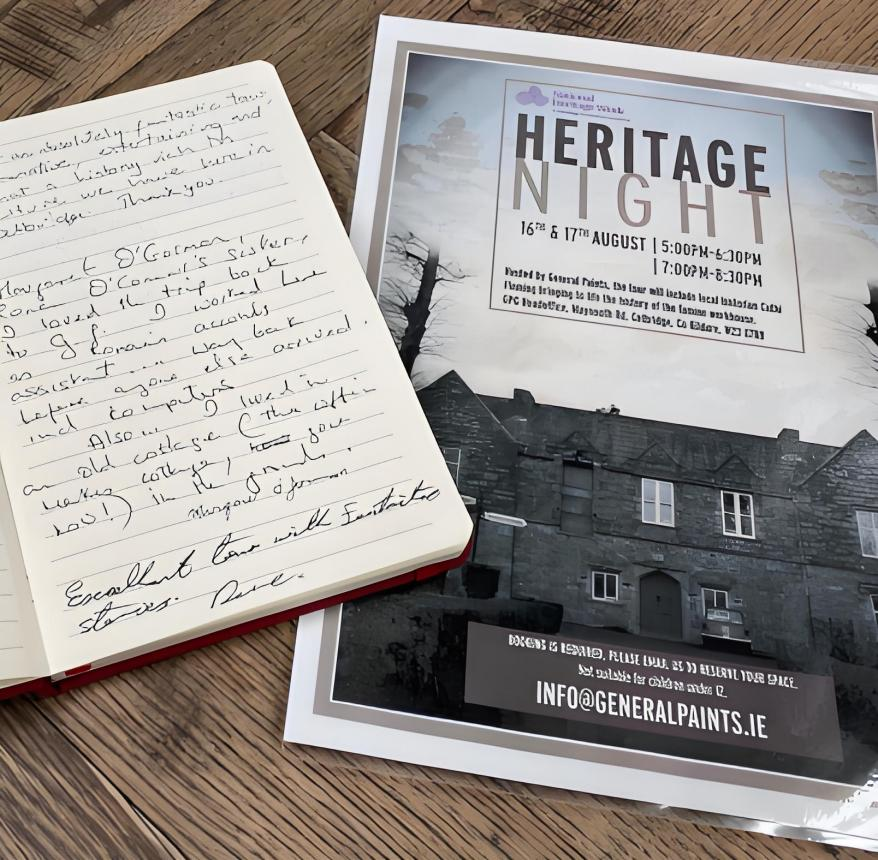 absolutely fantastic tour,
entertaining and
a history rich
we have here in
Thank you.
Margaret O'Gorman,
O'Connell's sister,
I loved the trip back
to I worked here
as Romain accounts
assistant way back
before anyone else arrived.
and computers
Also I lived in
an old cottage (the
cottage, you
now!) in the grounds.
Margaret O'Gorman
Excellent tour with fantastic
stories.
National
Heritage Week
HERITAGE
NIGHT
16TH & 17TH AUGUST | 5:00PM-6:30PM
| 7:00PM-8:30PM
Hosted by General Paints, the tour will include local historian
Fleming bringing to life the history of the famous workhouse.
GPC Maynooth Rd, Celbridge, Co Kildare,
BOOKING IS REQUIRED, PLEASE EMAIL US TO RESERVE YOUR SPACE.
Not suitable for children under 12.
INFO@GENERALPAINTS.IE